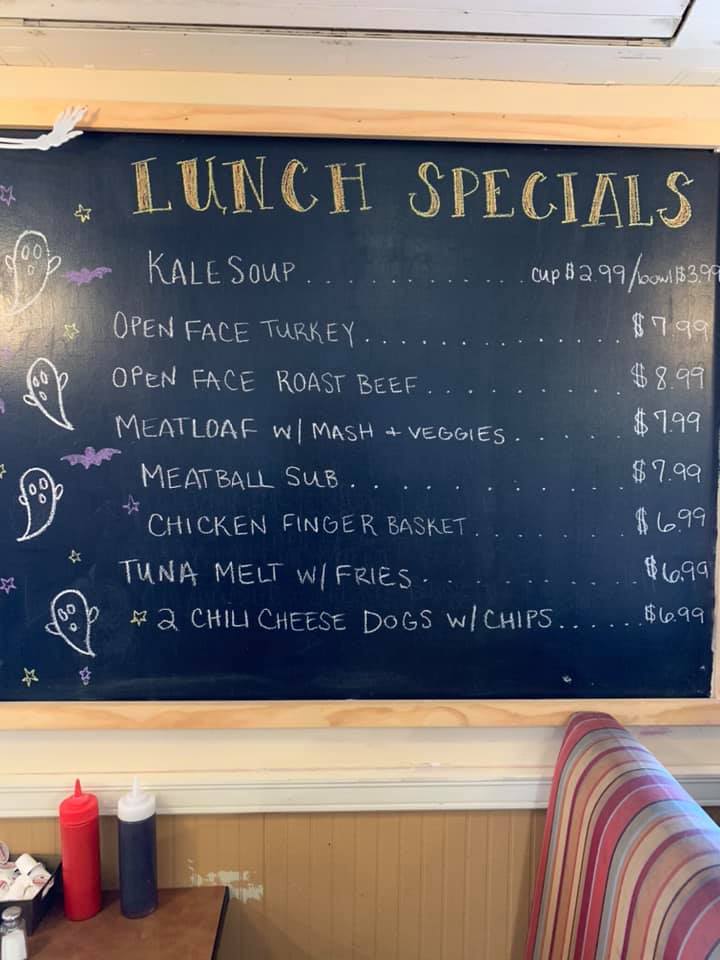 LUNCH SPECIALS
KALE SOUP............cup $2.99/bowl $3.99
OPEN FACE TURKEY.............$7.99
OPEN FACE ROAST BEEF.........$8.99
MEATLOAF W/ MASH + VEGGIES.....$7.99
MEATBALL SUB...........$7.99
CHICKEN FINGER BASKET.......$6.99
TUNA MELT W/ FRIES.........$6.99
2 CHILI CHEESE DOGS W/ CHIPS......$6.99